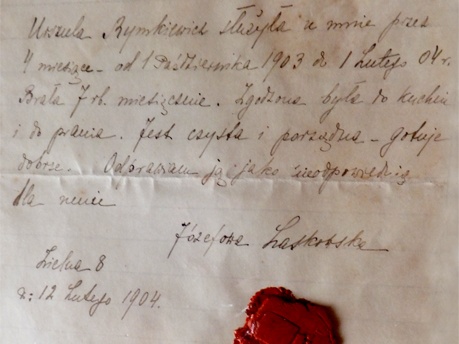 Urszula Rymkiewicz służyła u mnie przez
4 miesiące – od 1 Października 1903 do 1 Lutego 04 r.
Brała 7 rb. miesięcznie. Zgodzona była do kuchni
i do prania. Jest czysta i porządna – gotuje
dobrze. Odprawiam ją jako nieodpowiednią
dla mnie
Józefowa Laskowska
Zielna 8
d: 12 Lutego 1904.